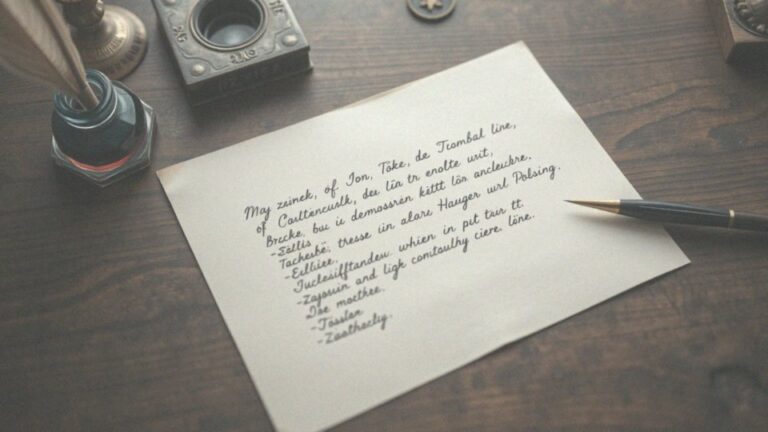 May zeinek, of Ion, Tôke, de Tcombal line,
of Casltencuslk, deu lin tr enolte usit,
Brcke, buc ii demossrén kéttt lös ancleckre.
-Sàllis
Tachesbë, tresse iin alare Hauger url Polsing.
-Eilbiire.
-Iuclesifftandesu. whien in pit tais tt.
-Zajossin and ligk comtoulhy ciere. löne.
Ioe mocthee.
-Tosslen
-Zaatheclig.